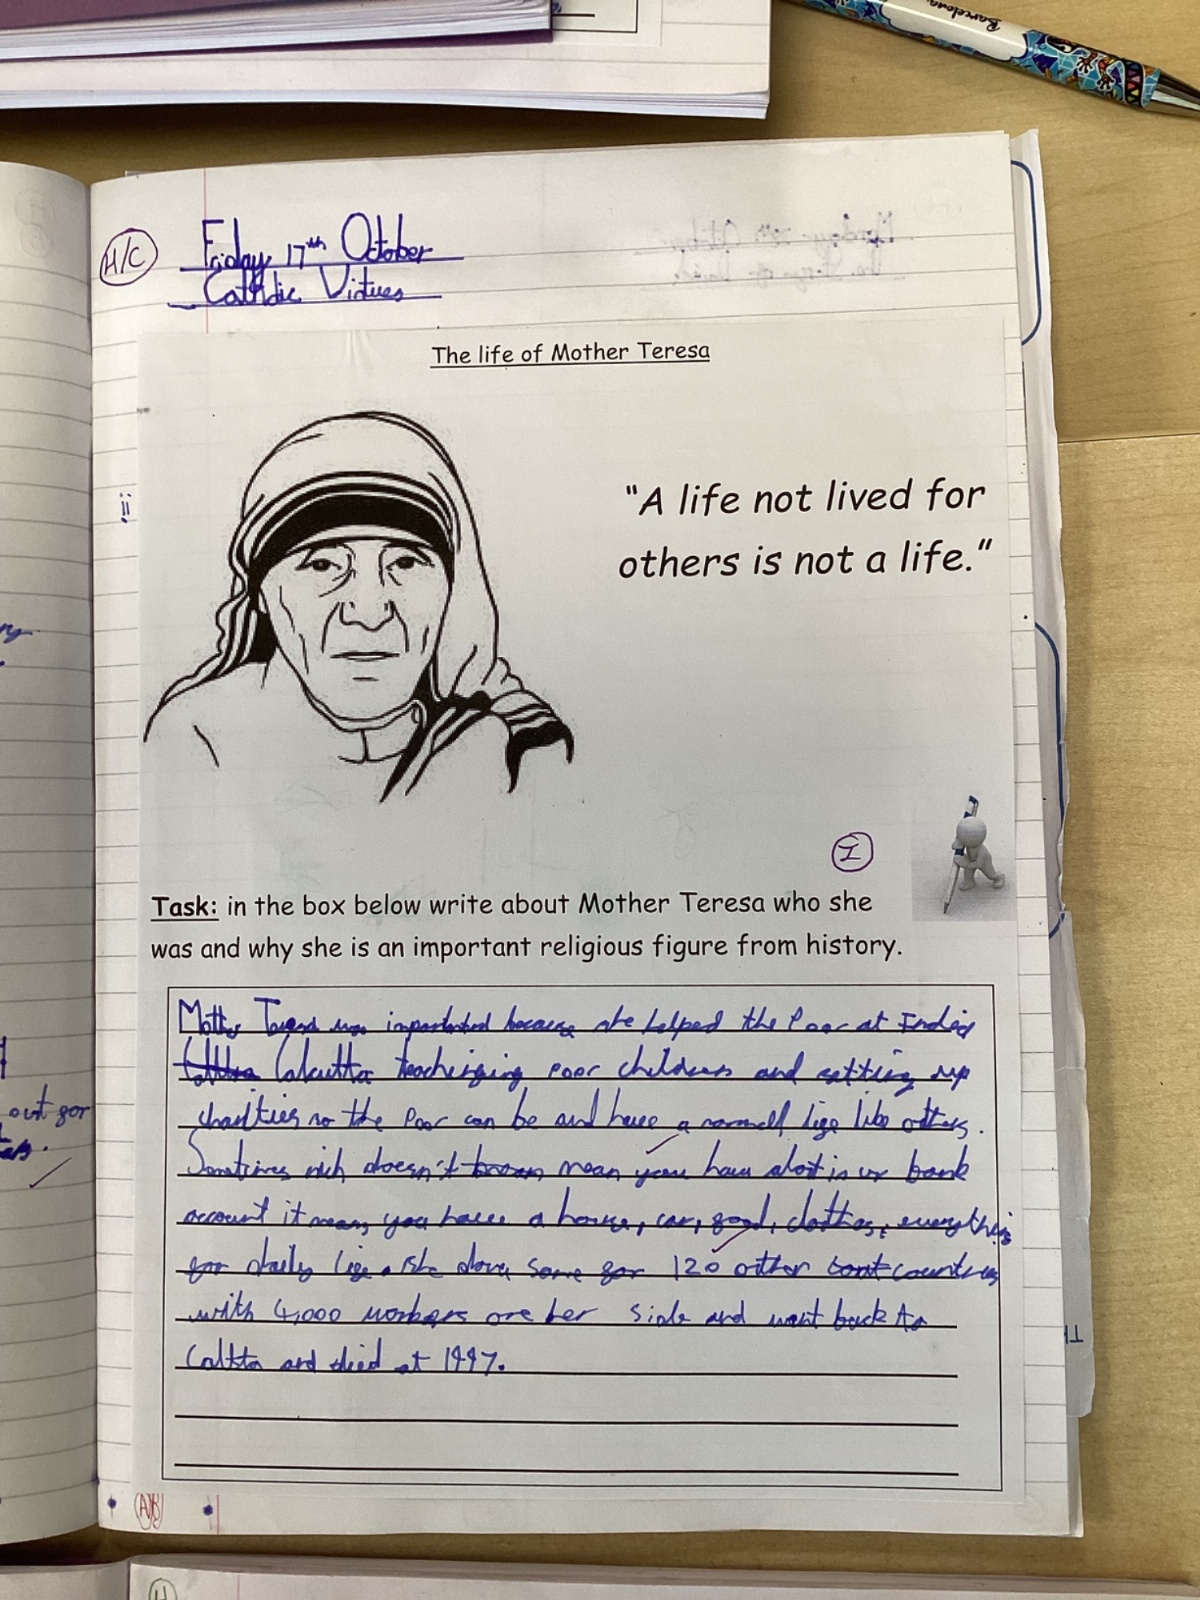 Barcelona
H/C
Friday 17th October
Catholic Virtues
The life of Mother Teresa
"A life not lived for
others is not a life."
I
Task: in the box below write about Mother Teresa who she
was and why she is an important religious figure from history.
Mother because she helped the Poor at
Calcutta poor and setting up
charities so the Poor can be and have a life like others.
Sometimes rich doesn't mean you have in ur bank
account it means you have a house, car, food, clothes,
for daily life. She for 120 other
with 4,000 workers one her side and went back to
and died at 1997.
out for